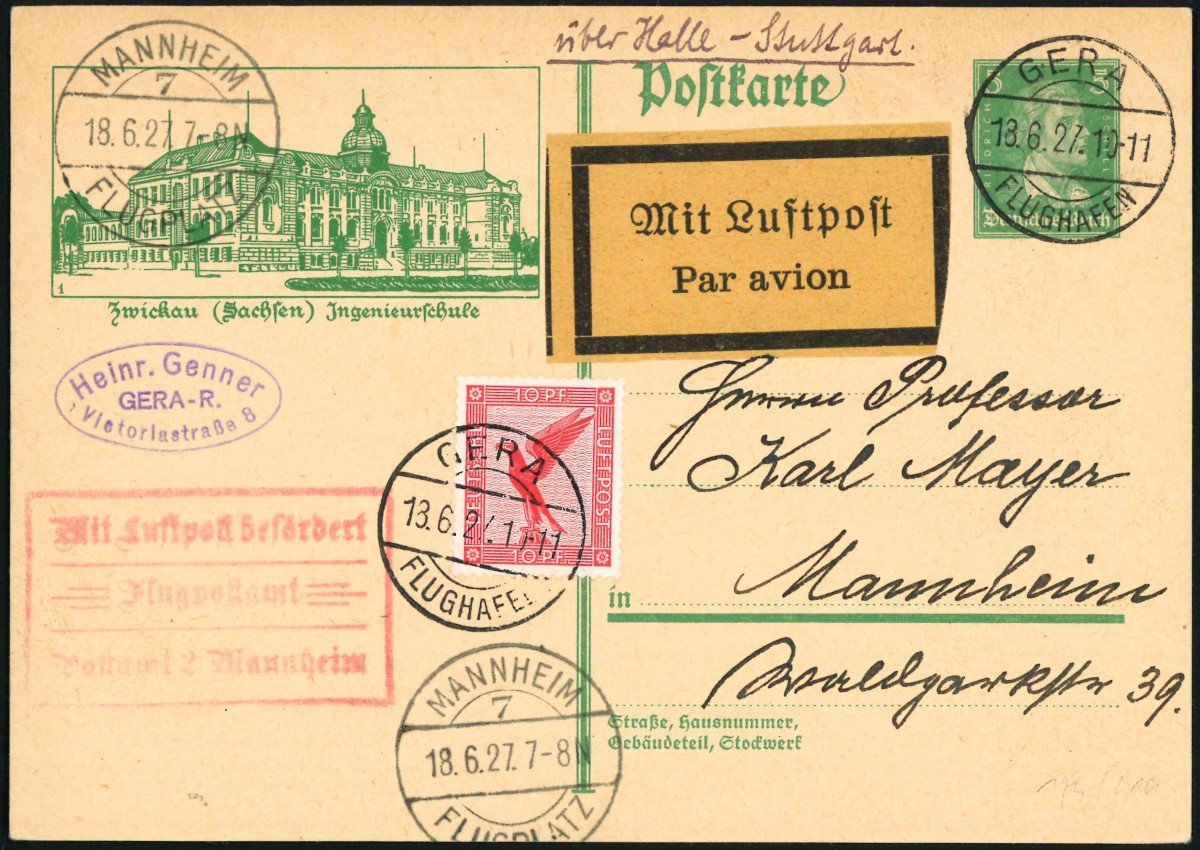 über Halle – Stuttgart.
Postkarte
MANNHEIM
7
18.6.27. 7-8N
FLUGPLATZ
GERA
18.6.27. 10-11
FLUGHAFEN
Mit Luftpost
Par avion
1
Zwickau (Sachsen) Ingenieurschule
Heinr. Genner
GERA-R.
Victoriastraße 8
10 PF.
LUFTPOST
10 PF.
GERA
18.6.27. 10-11
FLUGHAFEN
Herrn Professor
Karl Mayer
in Mannheim
Waldparkstr 39.
Mit Luftpost befördert
Flugpostamt
Postamt 2 Mannheim
Straße, Hausnummer,
Gebäudeteil, Stockwerk
MANNHEIM
7
18.6.27. 7-8N
FLUGPLATZ